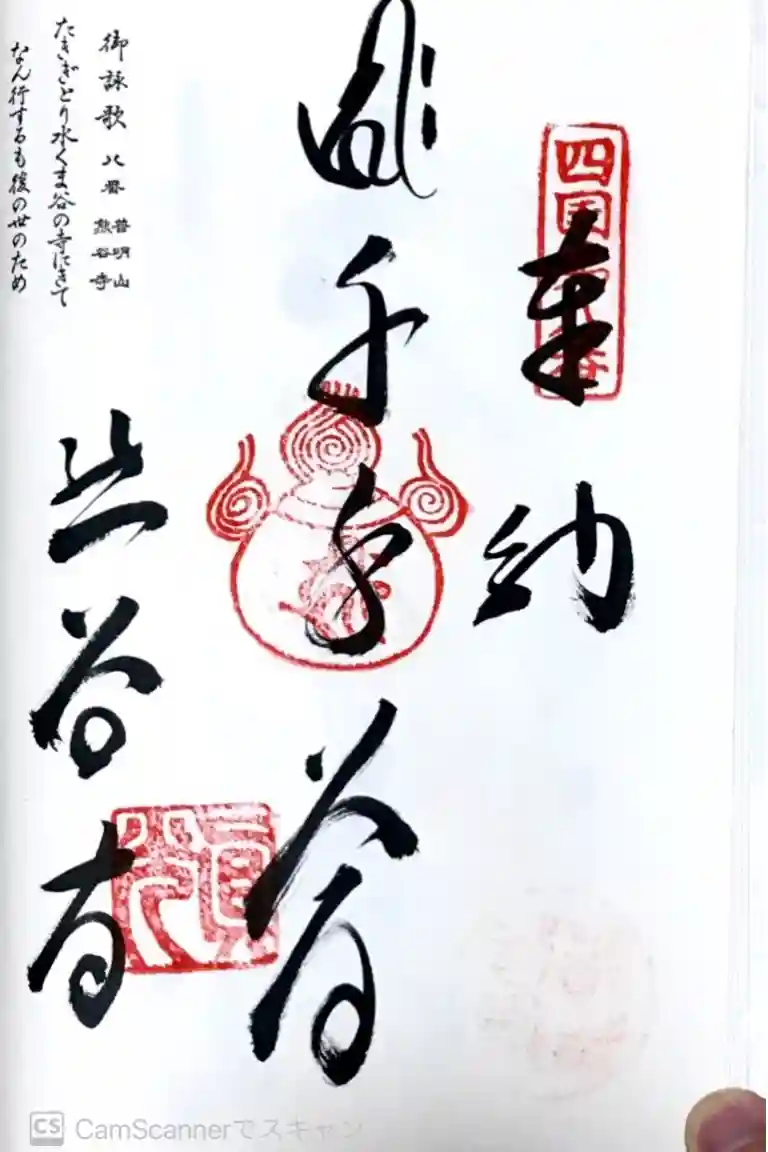 奉納
四国第八番
千手
熊谷寺
御詠歌 八番 普明山 熊谷寺
たきぎとり水くま谷の寺にきて
なん行するも後の世のため
CS CamScannerでスキャン